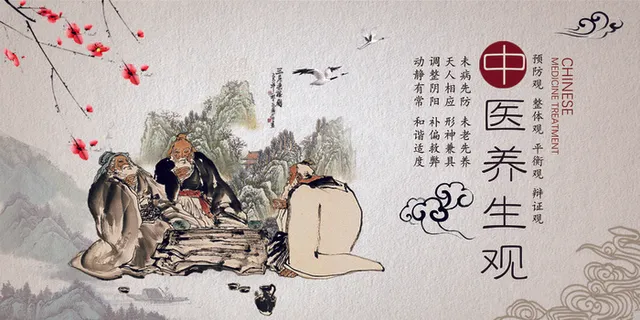 CHINESE
MEDICINE TREATMENT
预防观 整体观 平衡观 辩证观
中医养生观
未病先防 未老先养
天人相应 形神兼具
调整阴阳 补偏救弊
动静有常 和谐适度